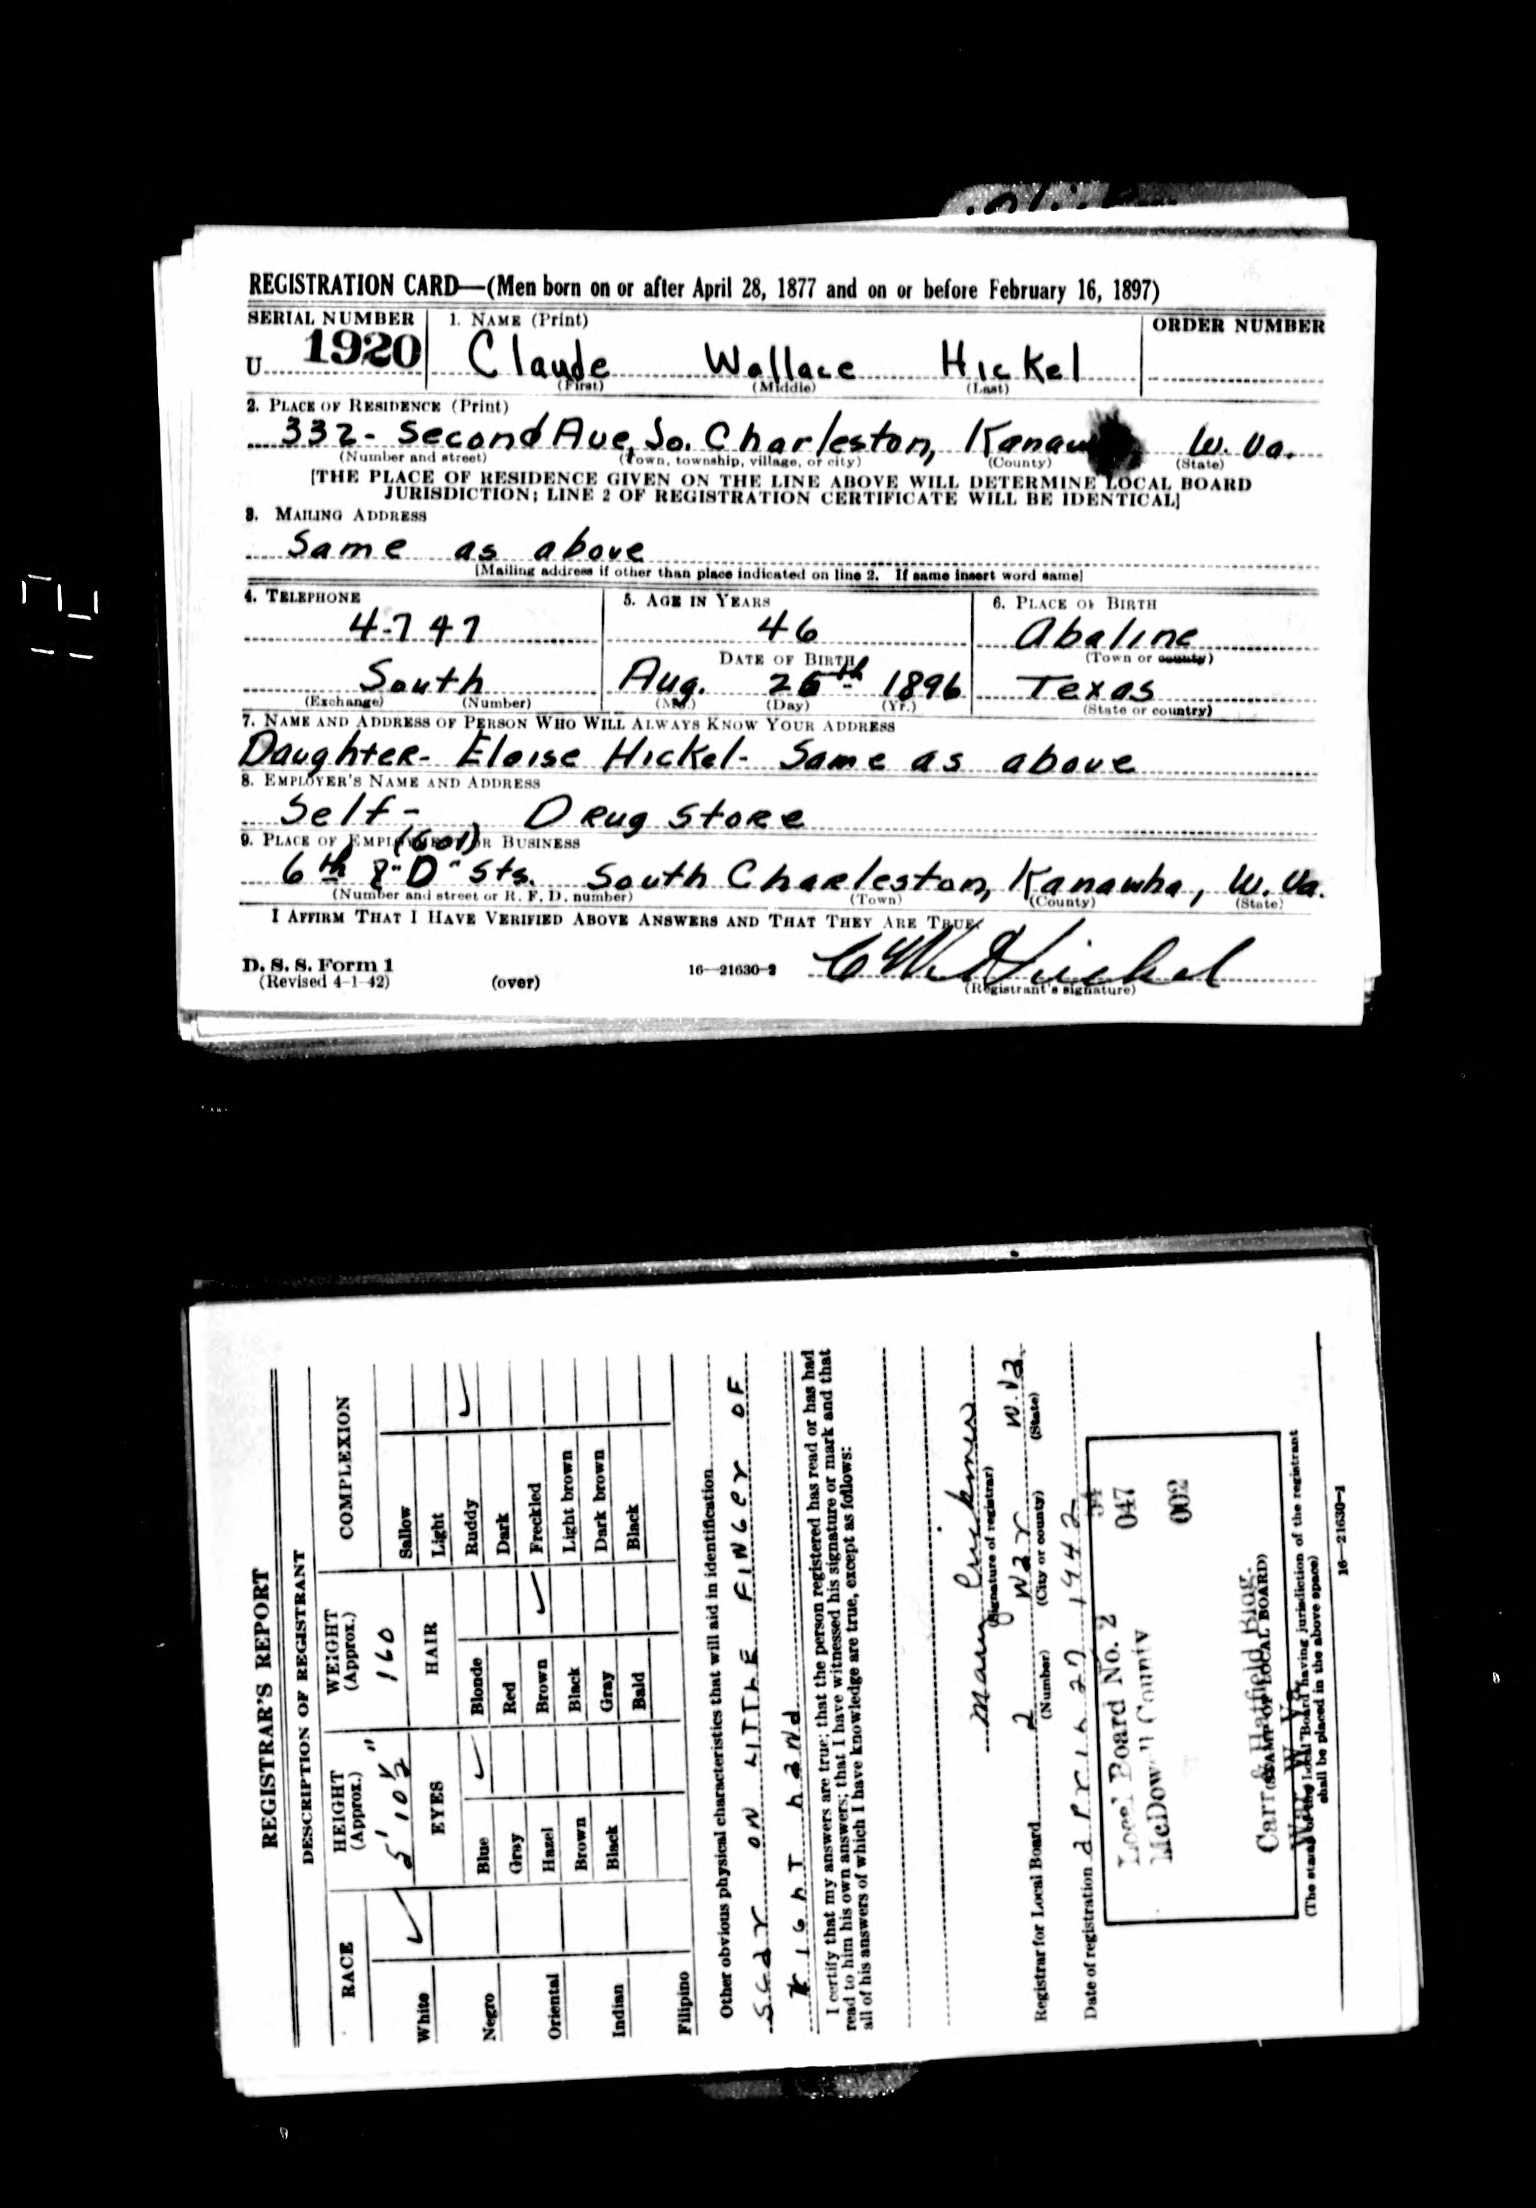 REGISTRATION CARD—(Men born on or after April 28, 1877 and on or before February 16, 1897)
SERIAL NUMBER 1. NAME (Print) ORDER NUMBER
U 1920 Claude Wallace Hickel
(First) (Middle) (Last)
2. PLACE OF RESIDENCE (Print)
332- Second Ave, So. Charleston, W. Va.
(Number and street) (Town, township, village, or city) (County) (State)
[THE PLACE OF RESIDENCE GIVEN ON THE LINE ABOVE WILL DETERMINE LOCAL BOARD
JURISDICTION; LINE 2 OF REGISTRATION CERTIFICATE WILL BE IDENTICAL]
3. MAILING ADDRESS
Same as above
[Mailing address if other than place indicated on line 2. If same insert word same]
4. TELEPHONE 5. AGE IN YEARS 6. PLACE OF BIRTH
4-747 46 Abaline
DATE OF BIRTH (Town or county)
South Aug. 1896 Texas
(Exchange) (Number) (Mo.) (Day) (Yr.) (State or country)
7. NAME AND ADDRESS OF PERSON WHO WILL ALWAYS KNOW YOUR ADDRESS
Daughter- Eloise Hickel- Same as above
8. EMPLOYER'S NAME AND ADDRESS
Self- Drug Store
9. PLACE OF EMPLOYMENT OR BUSINESS
(601)
6th & "D" Sts. South Charleston, Kanawha, W. Va.
(Number and street or R. F. D. number) (Town) (County) (State)
I AFFIRM THAT I HAVE VERIFIED ABOVE ANSWERS AND THAT THEY ARE TRUE.
D. S. S. Form 1
(Revised 4-1-42) (over) 16—21630-2 C W Hickel
(Registrant's signature)
REGISTRAR'S REPORT
DESCRIPTION OF REGISTRANT
RACE HEIGHT (Approx.) WEIGHT (Approx.) COMPLEXION
5' 10½" 160
White ✓
Negro
Oriental
Indian
Filipino
EYES
Blue ✓
Gray
Hazel
Brown
Black
HAIR
Blonde
Red
Brown ✓
Black
Gray
Bald
Sallow
Light
Ruddy ✓
Dark
Freckled
Light brown
Dark brown
Black
Other obvious physical characteristics that will aid in identification
Scar on little finger of
right hand
I certify that my answers are true; that the person registered has read or has had
read to him his own answers; that I have witnessed his signature or mark and that
all of his answers of which I have knowledge are true, except as follows:
Mary
(Signature of registrar)
Registrar for Local Board 2 War W. Va.
(Number) (City or county) (State)
Date of registration April 27 1942
Local Board No. 2 54
McDowell County 047
002
Carr & Hatfield Bldg.
(STAMP OF LOCAL BOARD)
War, W. Va.
(The stamp of the Local Board having jurisdiction of the registrant
shall be placed in the above space)
16—21630-1